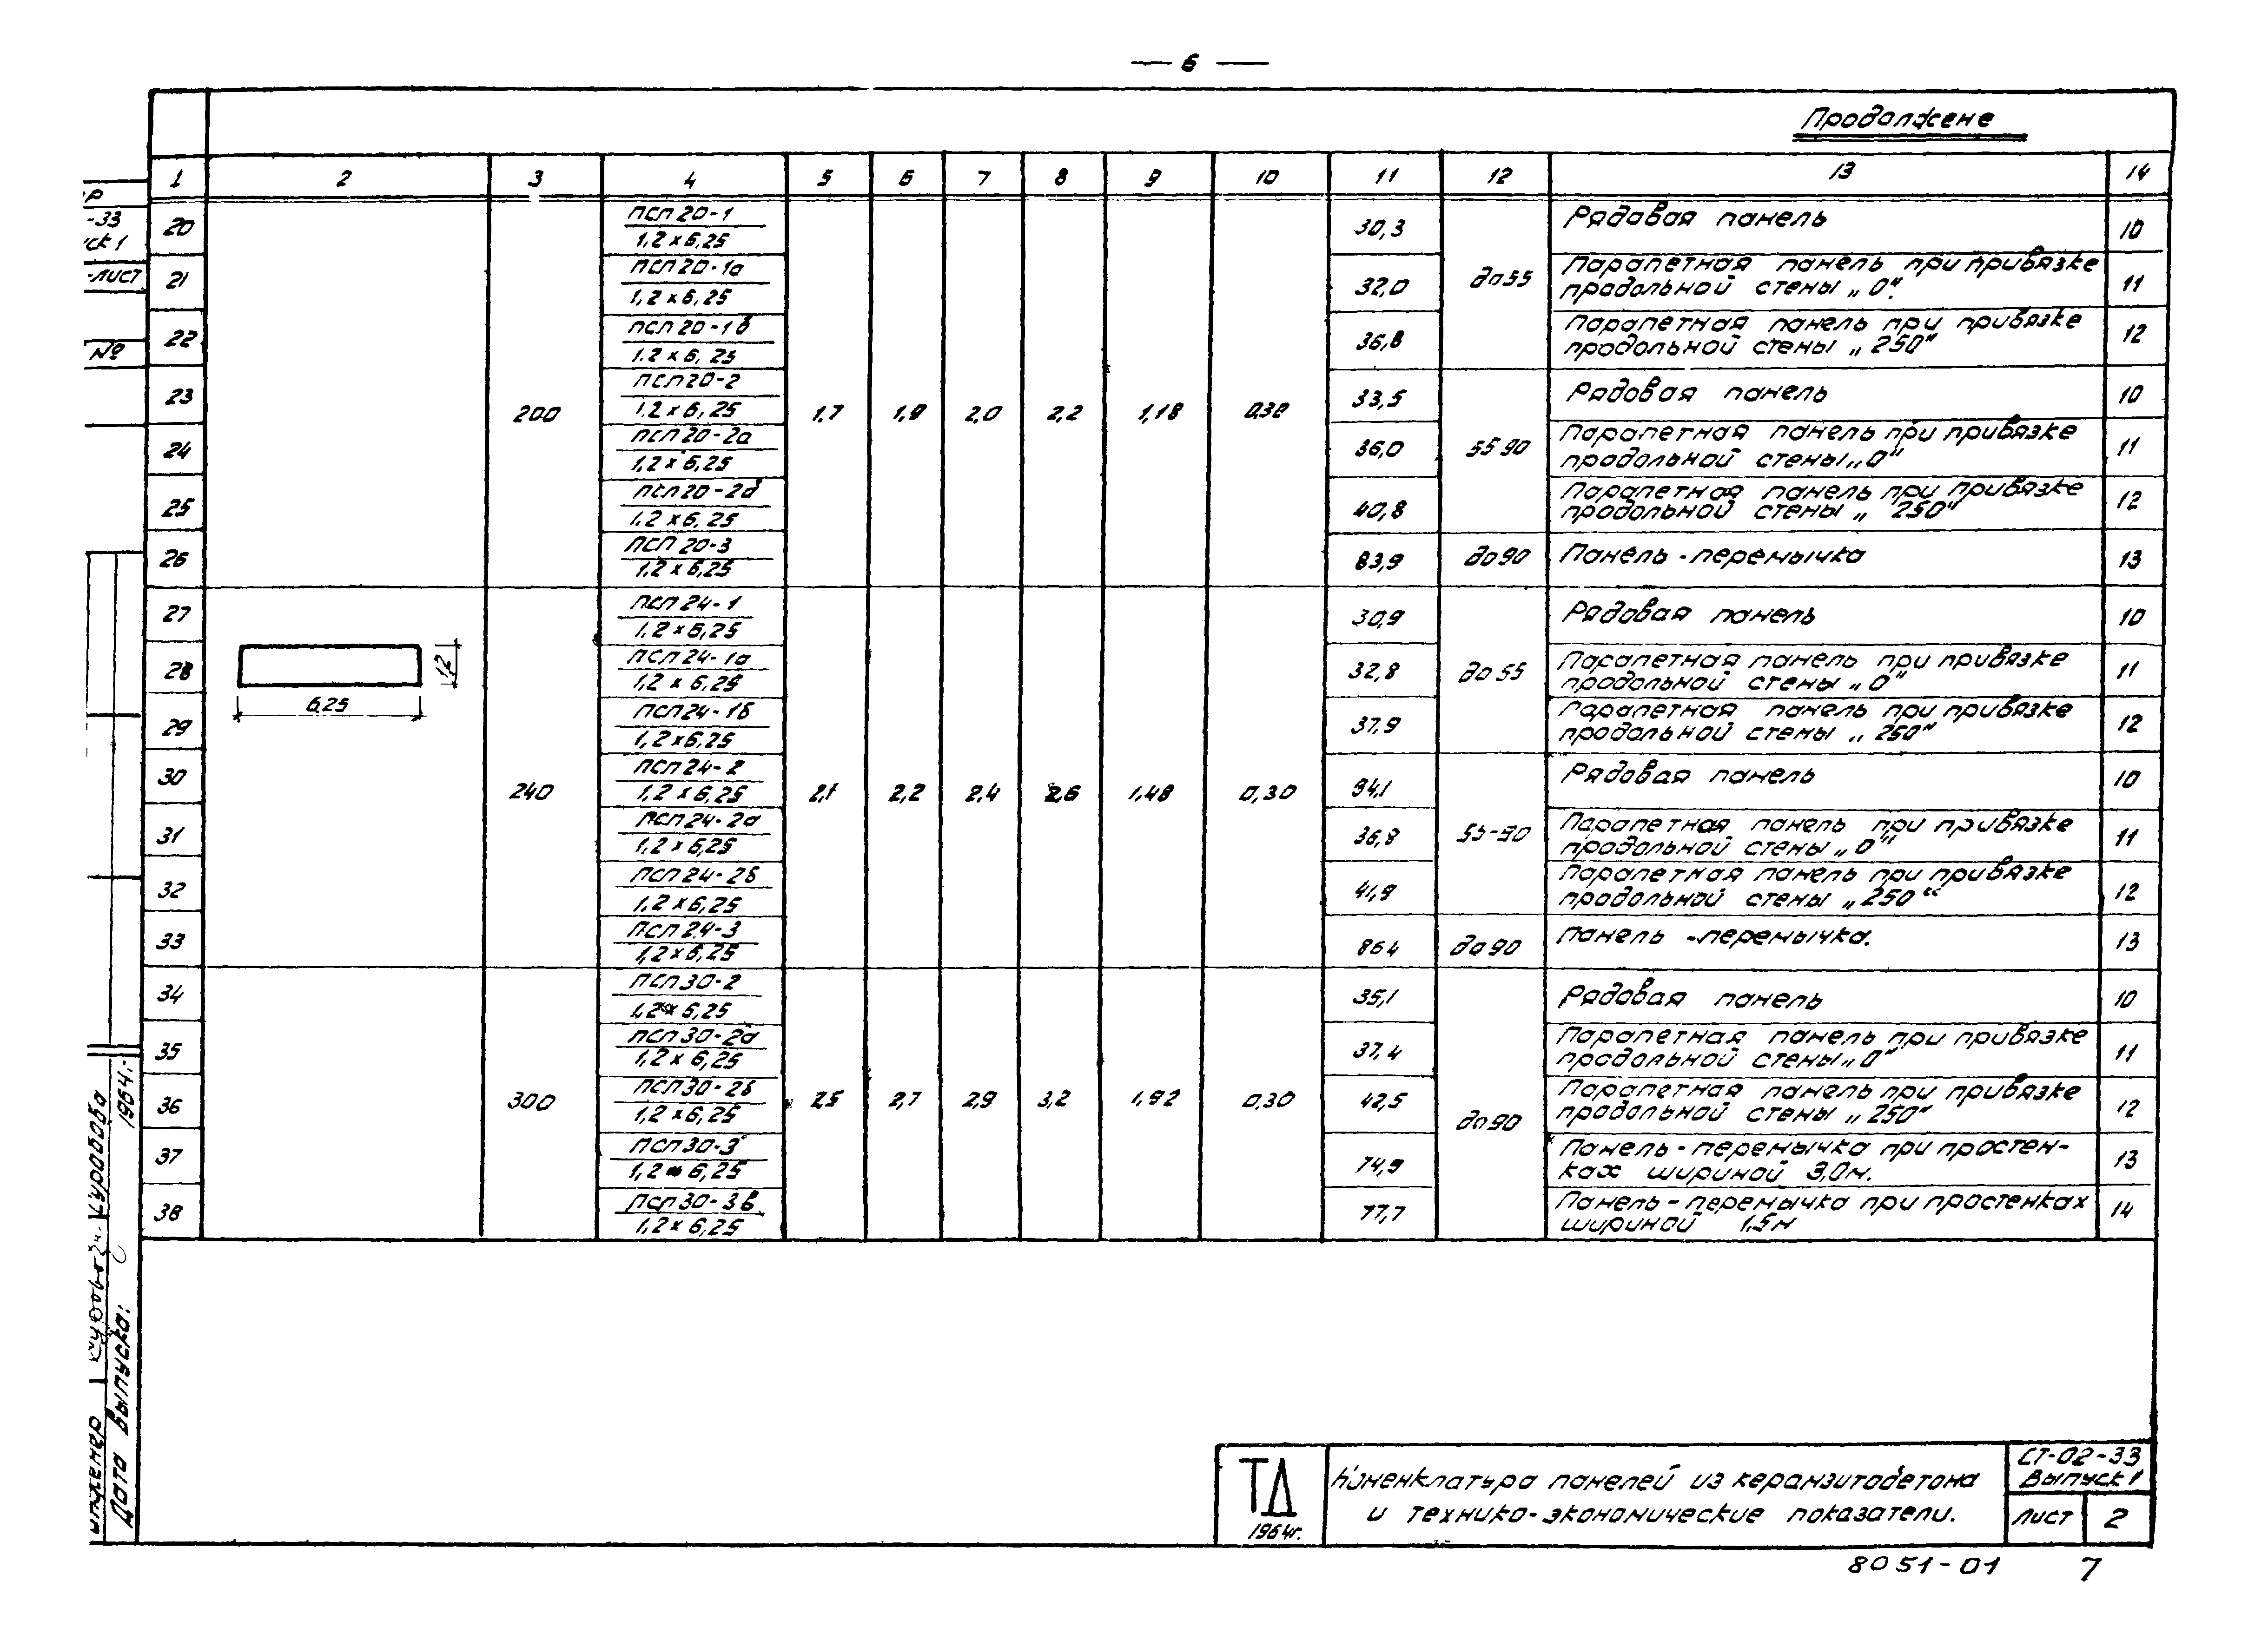 — 6 —
Продолжене
1 2 3 4 5 6 7 8 9 10 11 12 13 14
20 ПСП 20-1 30,3 Рядовая панель 10
1,2 х 6,25
21 ПСП 20-1а 32,0 до 55 Парапетная панель при привязке 11
1,2 х 6,25 продольной стены „0"
22 ПСП 20-1б 36,8 Парапетная панель при привязке 12
1,2 х 6,25 продольной стены „250"
23 ПСП 20-2 33,5 Рядовая панель 10
200 1,2 х 6,25 1,7 1,9 2,0 2,2 1,18 0,30
24 ПСП 20-2а 36,0 55 90 Парапетная панель при привязке 11
1,2 х 6,25 продольной стены „0"
25 ПСП 20-2б 40,8 Парапетная панель при привязке 12
1,2 х 6,25 продольной стены „250"
26 ПСП 20-3 83,9 до 90 Панель-перемычка 13
1,2 х 6,25
27 ПСП 24-1 30,9 Рядовая панель 10
1,2 х 6,25
28 ПСП 24-1а 32,8 до 55 Парапетная панель при привязке 11
1,2 х 6,25 продольной стены „0"
1,2
6,25
29 ПСП 24-1б 37,9 Парапетная панель при привязке 12
1,2 х 6,25 продольной стены „250"
30 ПСП 24-2 34,1 Рядовая панель 10
240 1,2 х 6,25 2,1 2,2 2,4 2,6 1,48 0,30
31 ПСП 24-2а 36,8 55-90 Парапетная панель при привязке 11
1,2 х 6,25 продольной стены „0"
32 ПСП 24-2б 41,9 Парапетная панель при привязке 12
1,2 х 6,25 продольной стены „250"
33 ПСП 24-3 86 4 до 90 Панель-перемычка. 13
1,2 х 6,25
34 ПСП 30-2 35,1 Рядовая панель 10
1,2 х 6,25
35 ПСП 30-2а 37,4 Парапетная панель при привязке 11
1,2 х 6,25 продольной стены „0"
36 300 ПСП 30-2б 2,5 2,7 2,9 3,2 1,92 0,30 42,5 до 90 Парапетная панель при привязке 12
1,2 х 6,25 продольной стены „250"
37 ПСП 30-3 74,9 Панель-перемычка при простен- 13
1,2 х 6,25 ках шириной 3,0м.
38 ПСП 30-3в 77,7 Панель-перемычка при простенках 14
1,2 х 6,25 шириной 1.5м
-33
ск 1
-лист
№
1964г.
Дата выпуска:
инженер
ТД
1964г.
Номенклатура панелей из керамзитобетона
и технико-экономические показатели.
СТ-02-33
Выпуск 1
Лист 2
8051-01 7